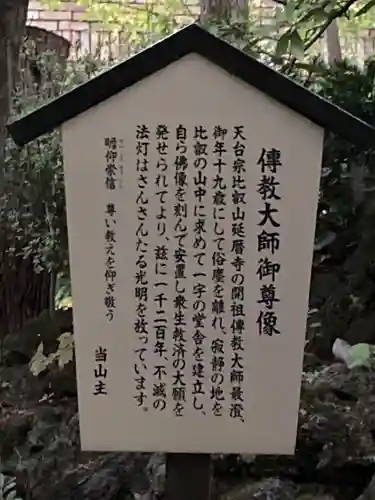 傳教大師御尊像
天台宗比叡山延暦寺の開祖傳教大師最澄、
御年十九歳にして俗塵を離れ、寂静の地を
比叡の山中に求めて一字の堂舎を建立し、
自ら佛像を刻んで安置し衆生救済の大願を
発せられてより、茲に一千二百年、不滅の
法灯はさんさんたる光明を放っています。
瞻仰崇信 尊い教えを仰ぎ敬う
当山主